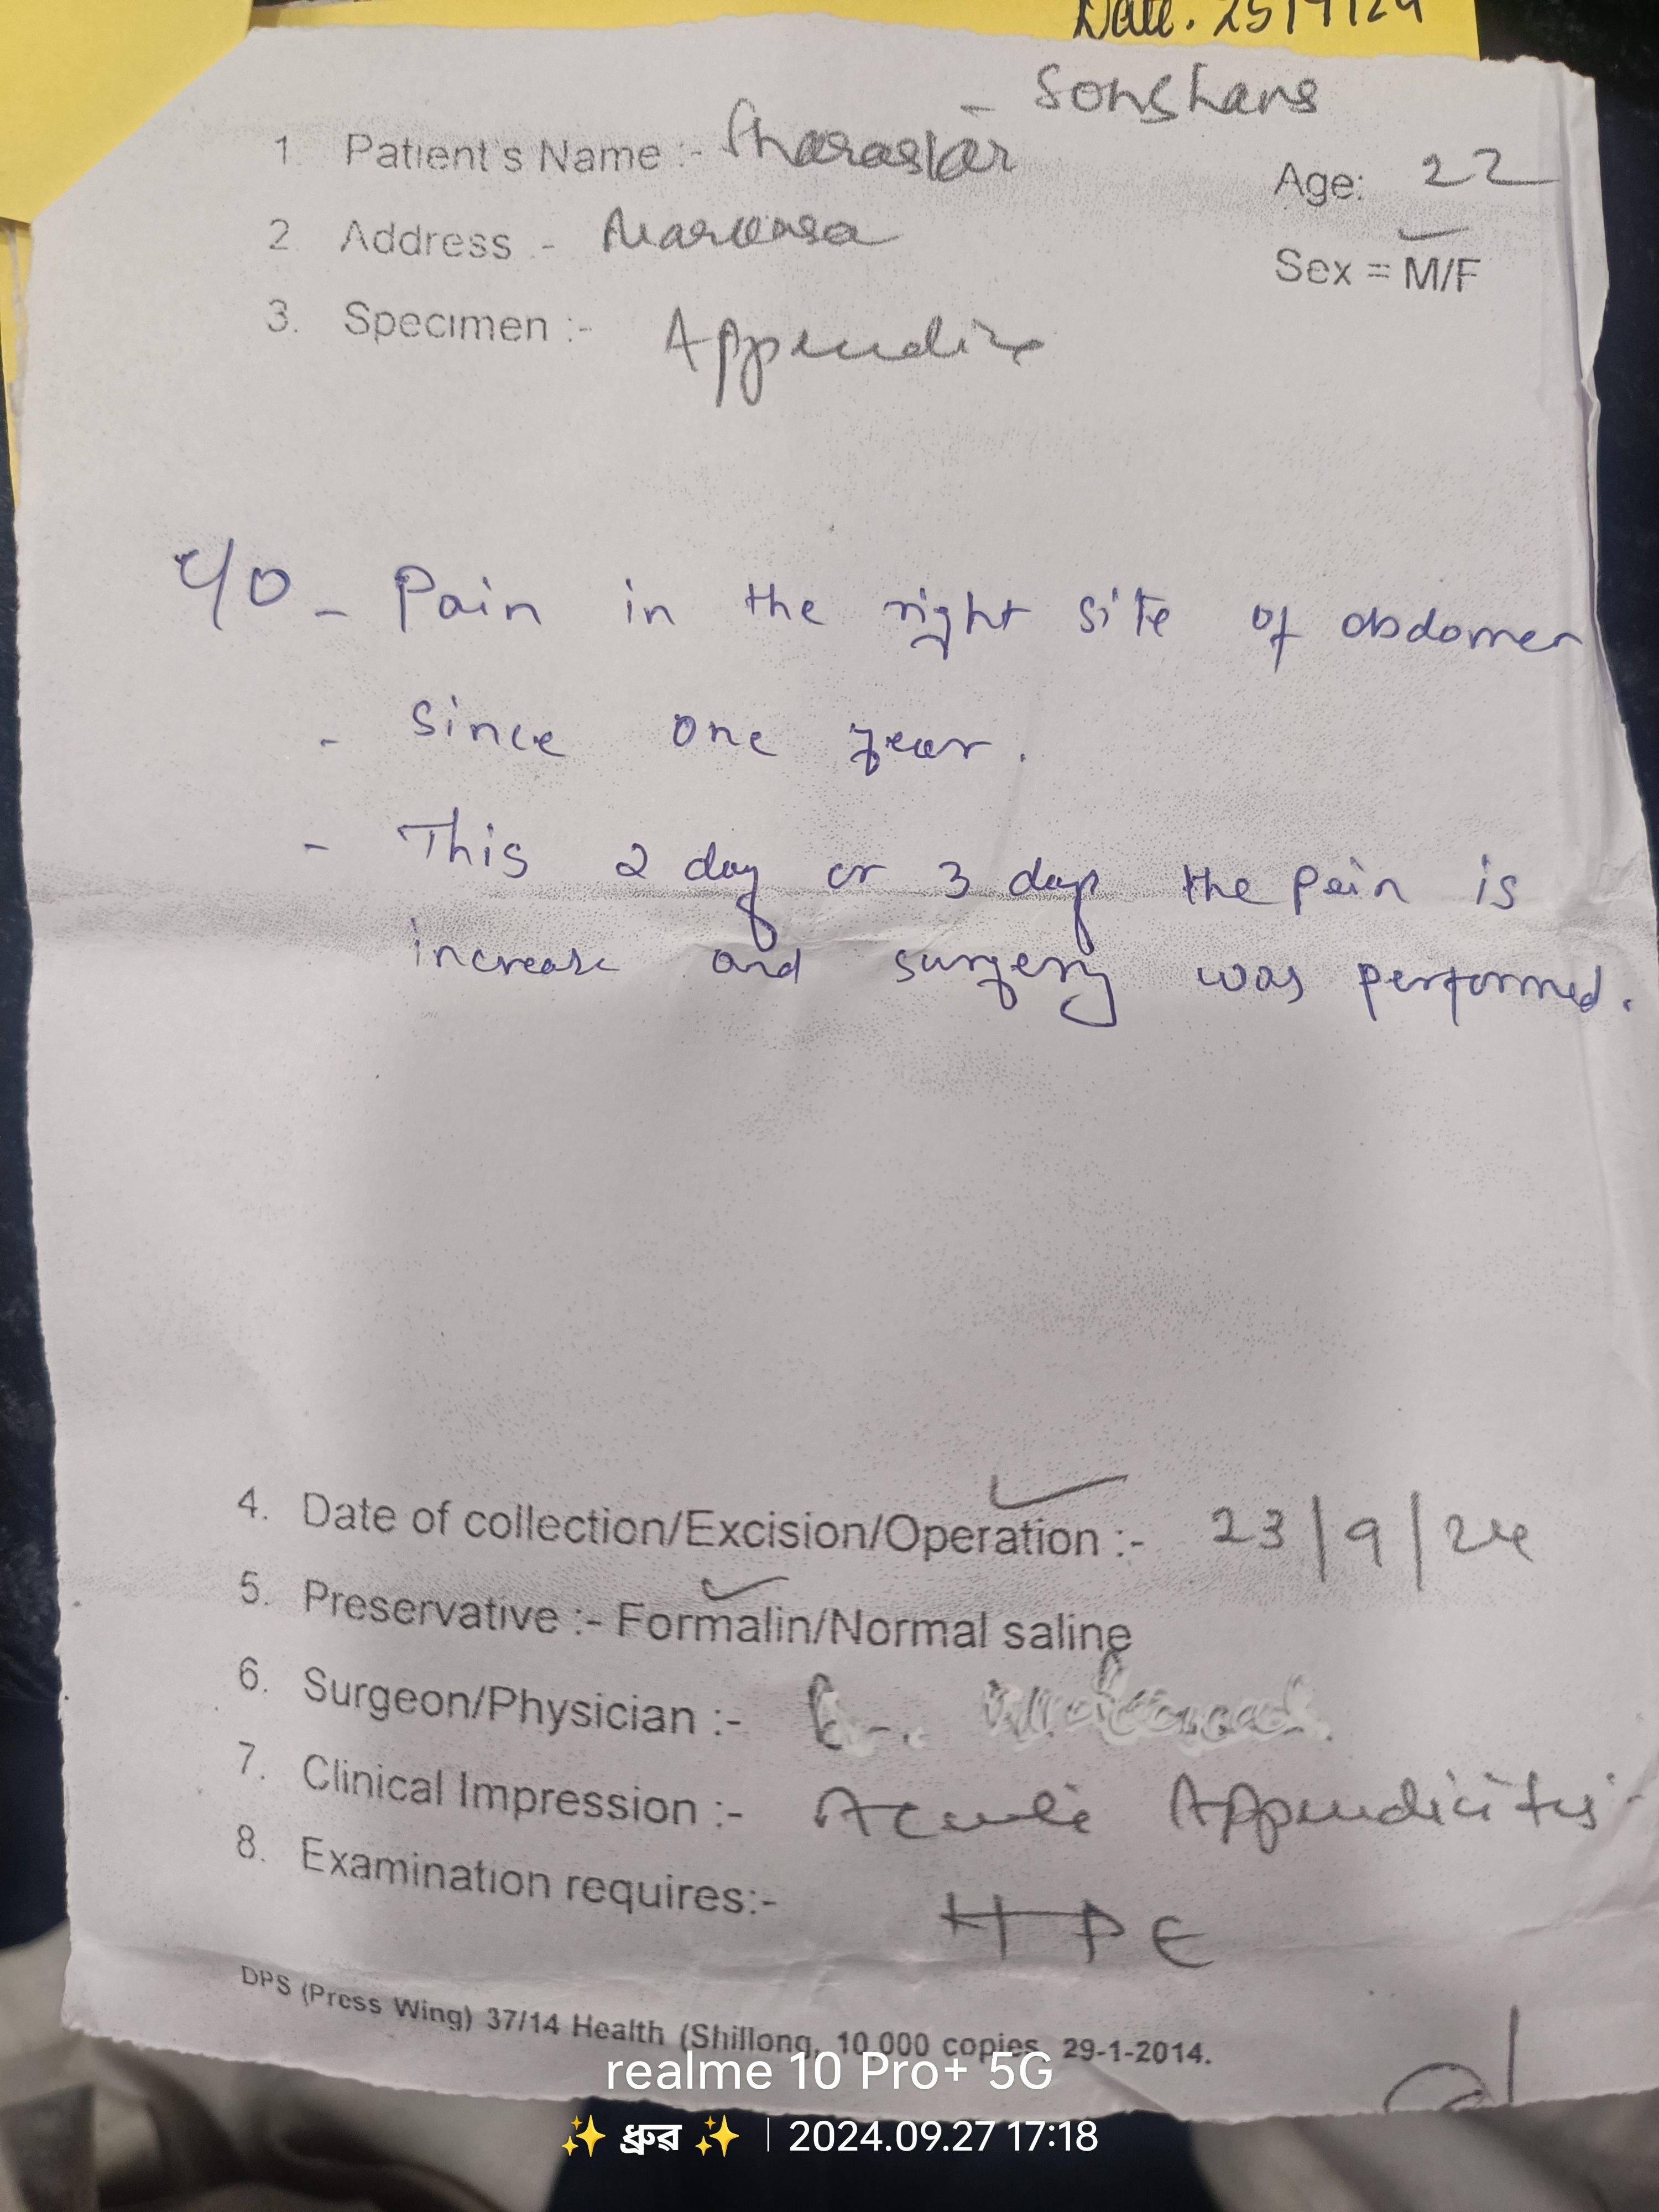 Date. 25/9/24
- Sohshans
1. Patient's Name :-
Age: 22
2. Address :-
Sex = M/F
3. Specimen :- Appendix
c/o - Pain in the right site of abdomen
- Since one year.
- This 2 day or 3 days the pain is
increase and surgery was performed.
4. Date of collection/Excision/Operation :- 23/9/24
5. Preservative :- Formalin/Normal saline
6. Surgeon/Physician :-
7. Clinical Impression :- Acute Appendicitis -
8. Examination requires:- HPE
DPS (Press Wing) 37/14 Health (Shillong, 10,000 copies, 29-1-2014.
realme 10 Pro+ 5G
✨ ধ্রুৱ ✨ | 2024.09.27 17:18